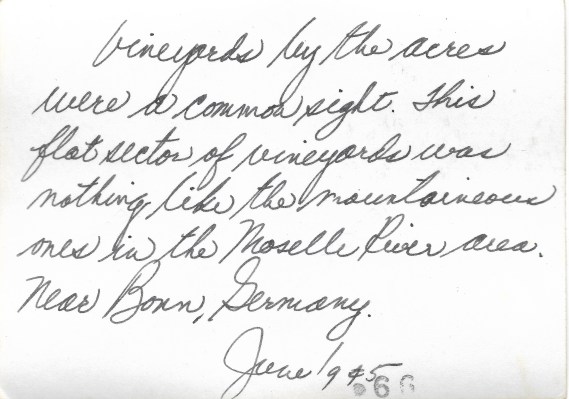 Vineyards by the acres
were a common sight. This
flat sector of vineyards was
nothing like the mountaineous
ones in the Moselle River area.
Near Bonn, Germany.
June 1945